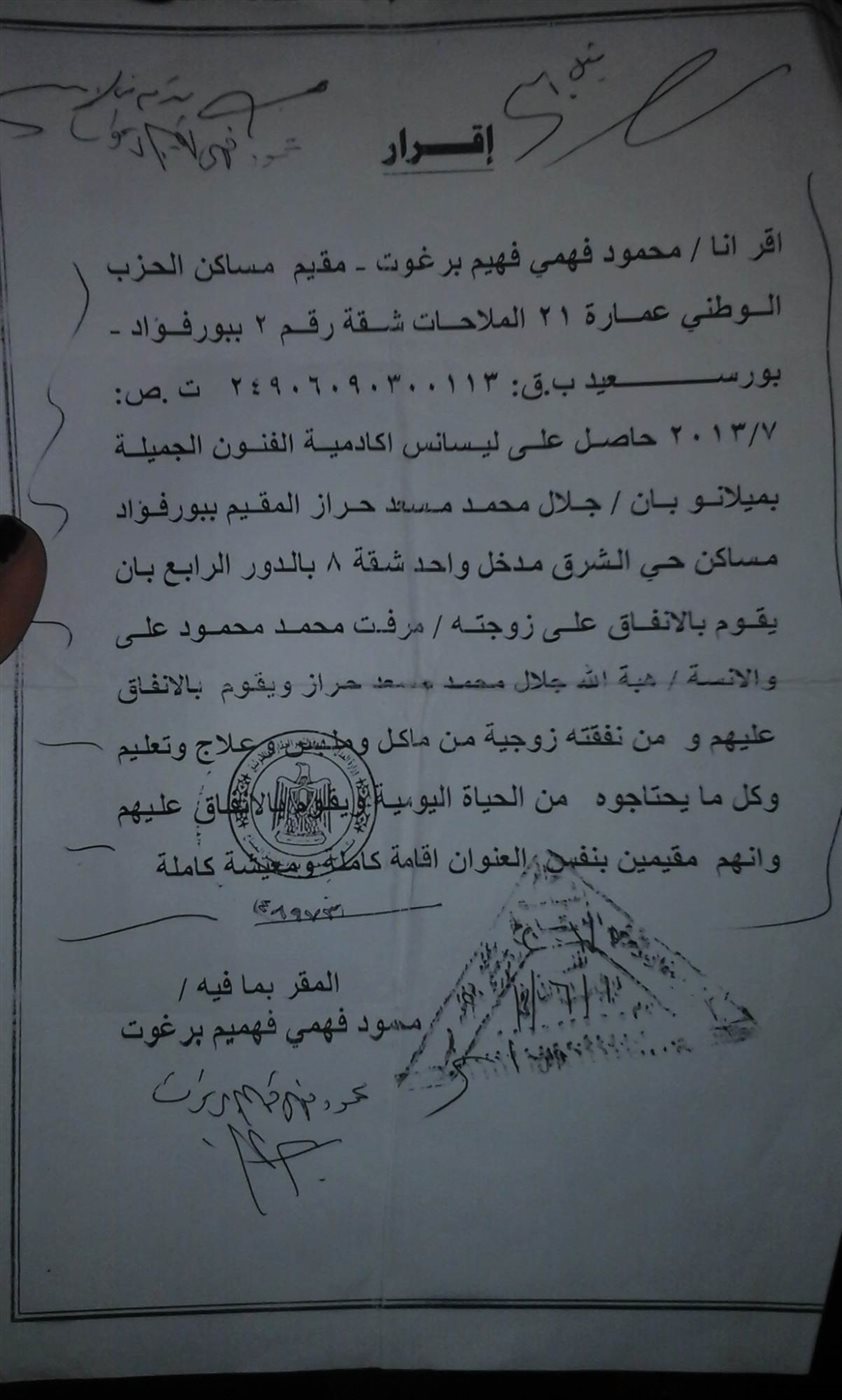 إقـــرار
اقر انا / محمود فهمي فهيم برغوت - مقيم مساكن الحزب
الوطني عمارة ٢١ الملاحات شقة رقم ٢ ببورفؤاد -
بورسعيد ب.ق: ٢٤٩٠٦٠٩٠٣٠٠١١٣ ت .ص:
٢٠١٣/٧ حاصل على ليسانس اكادمية الفنون الجميلة
بميلانو بان / جلال محمد مسعد حراز المقيم ببورفؤاد
مساكن حي الشرق مدخل واحد شقة ٨ بالدور الرابع بان
يقوم بالانفاق على زوجته / مرفت محمد محمود على
والانسة / هبة الله جلال محمد مسعد حراز ويقوم بالانفاق
عليهم و من نفقته زوجية من ماكل وملبس وعلاج وتعليم
وكل ما يحتاجوه من الحياة اليومية ويقوم بالانفاق عليهم
وانهم مقيمين بنفس العنوان اقامة كاملة ومعيشة كاملة
المقر بما فيه /
محمود فهمي فهميم برغوت